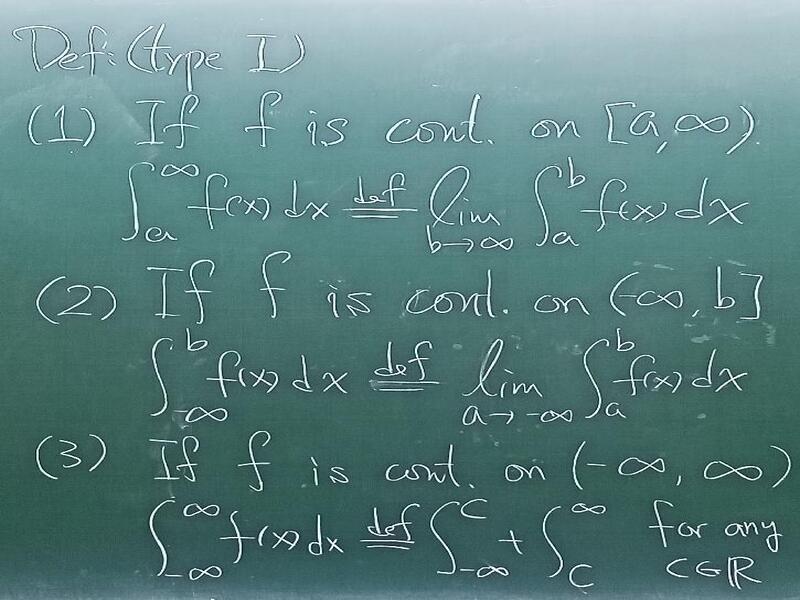 Def: (type I)
(1) If f is cont. on [a, ∞).
∫_a^∞ f(x) dx \overset{def}{=} lim_{b→∞} ∫_a^b f(x) dx
(2) If f is cont. on (-∞, b]
∫_{-∞}^b f(x) dx \overset{def}{=} lim_{a→-∞} ∫_a^b f(x) dx
(3) If f is cont. on (-∞, ∞)
∫_{-∞}^∞ f(x) dx \overset{def}{=} ∫_{-∞}^c + ∫_c^∞ for any c∈ℝ